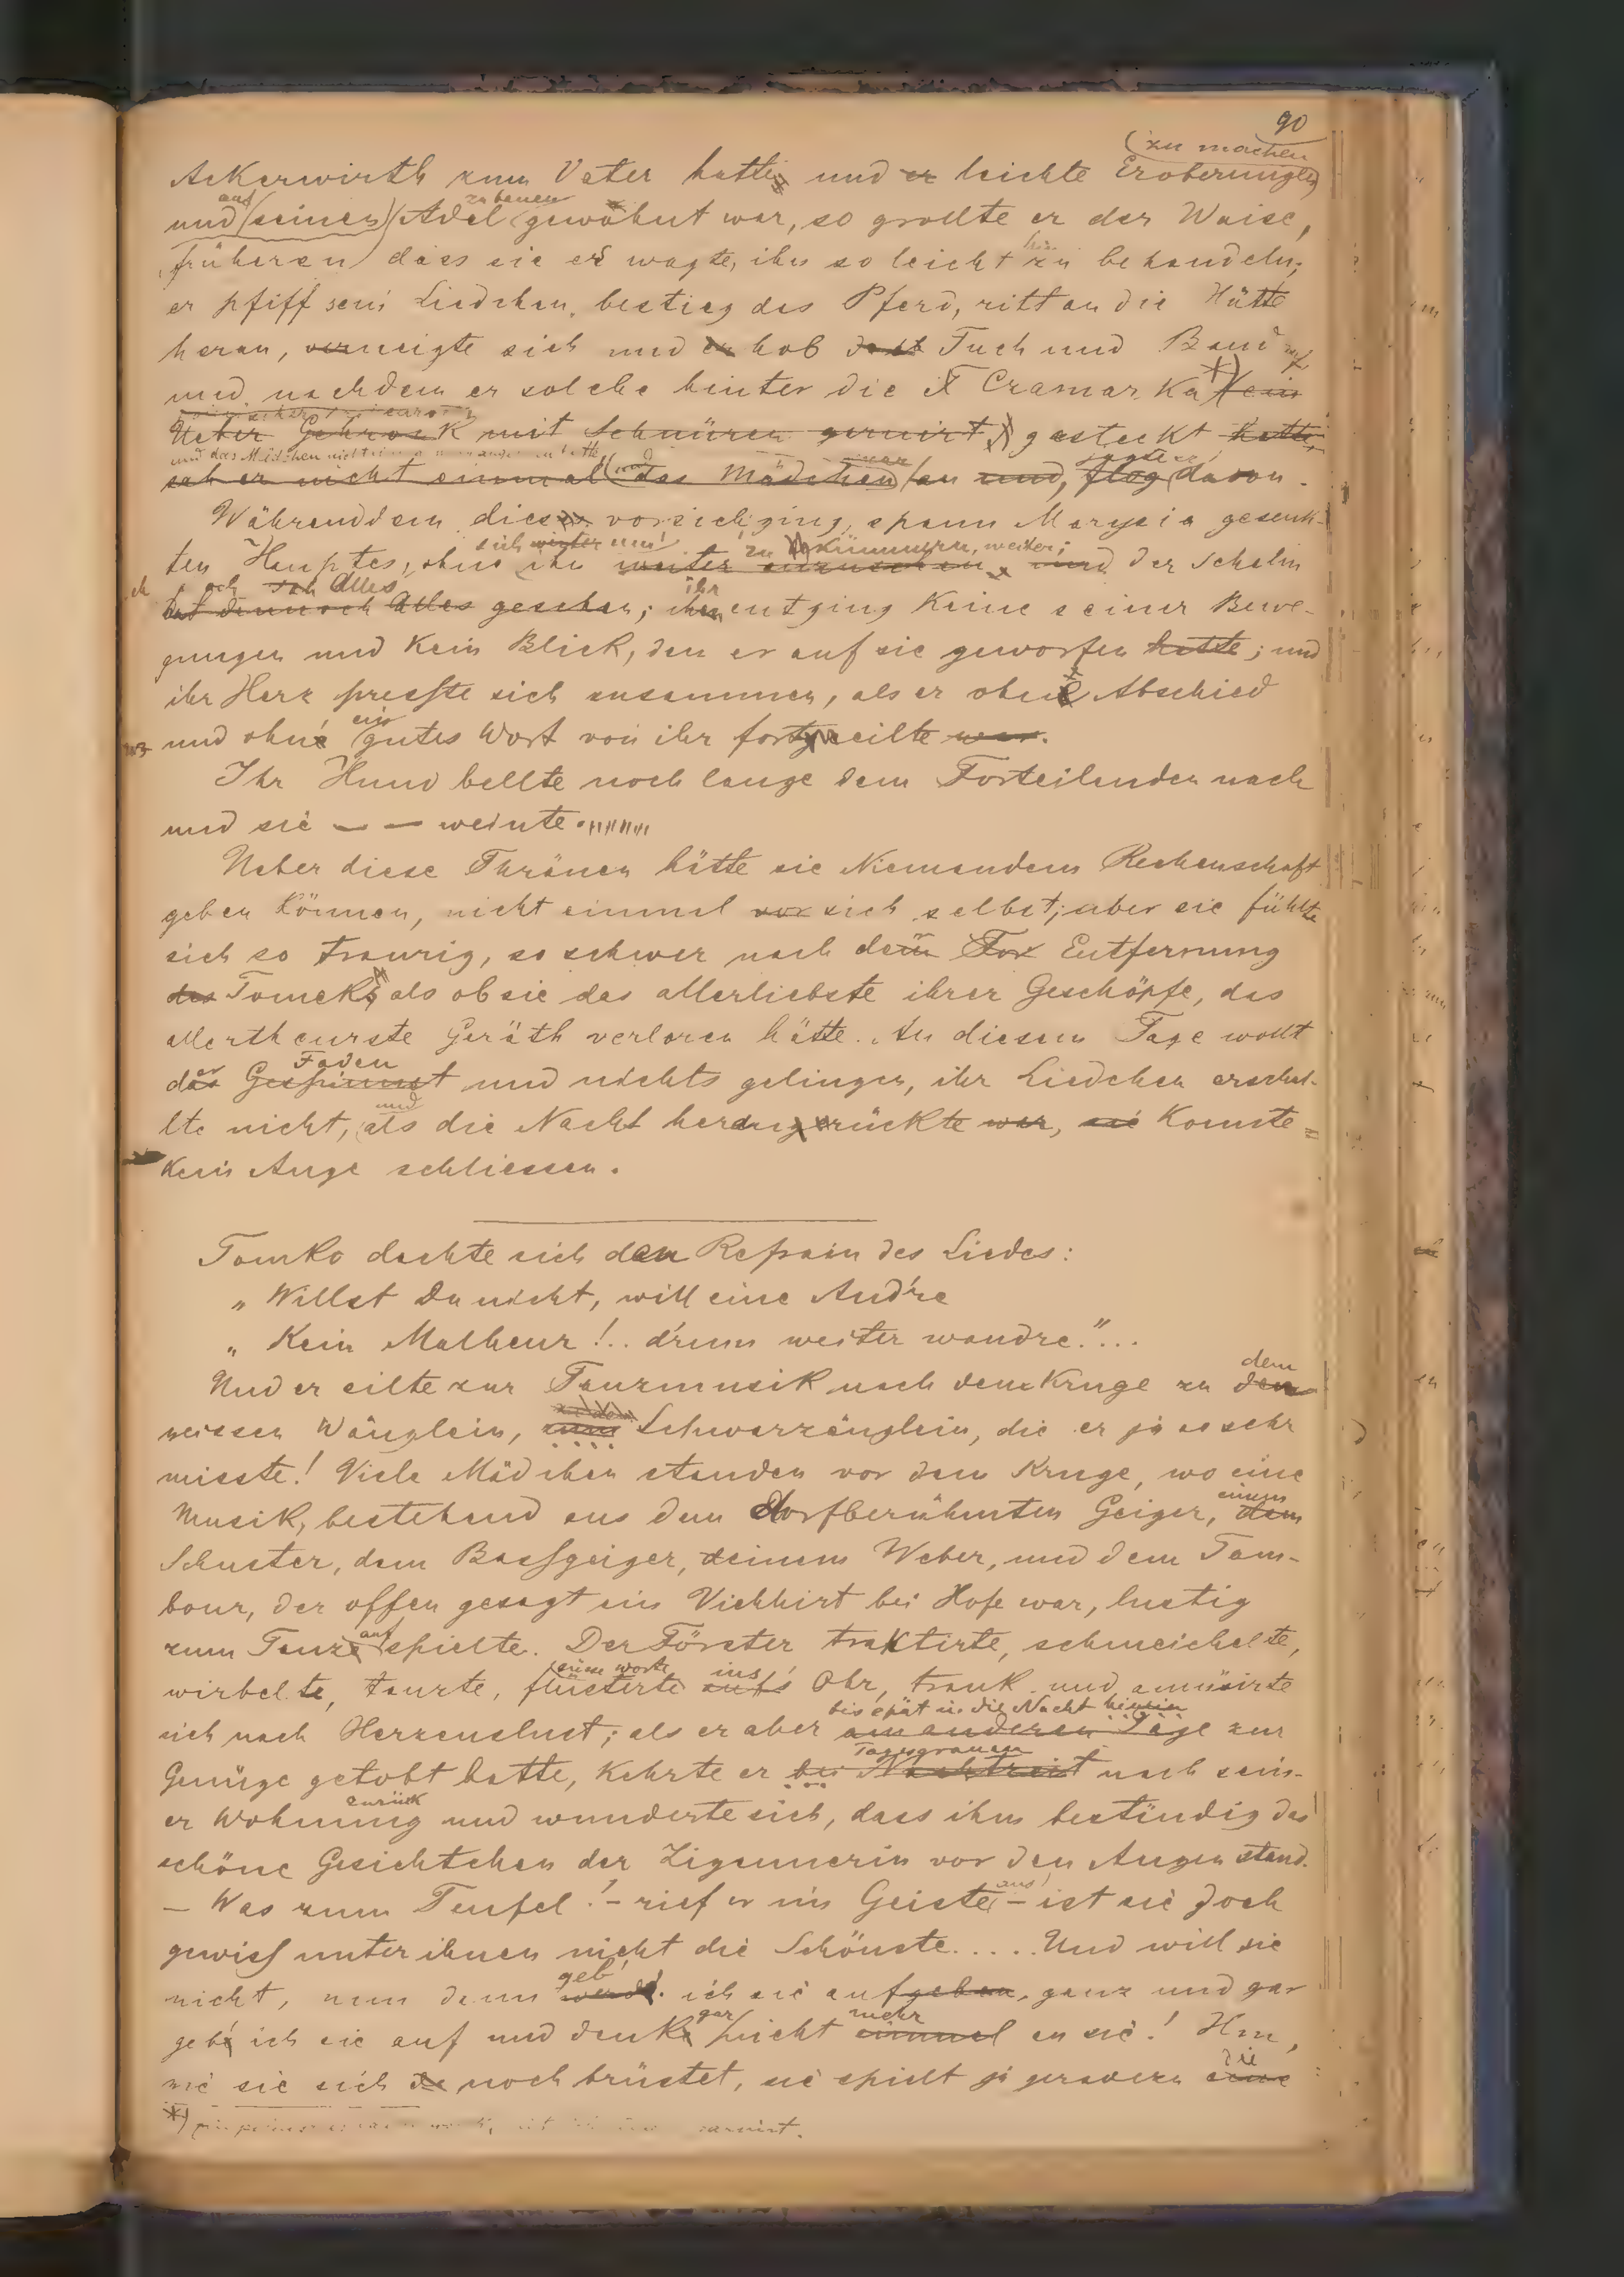 90
(zu machen
Ackerwirth zum Vater hatte und er leichte Eroberungen)
auf zu bauen
und (seinen) Adel gewöhnt war, so grollte er der Waise,
früheren) dass sie es wagte, ihn so leicht zu behandeln;
er pfiff sein Liedchen, bestieg das Pferd, ritt an die Hütte
heran, verneigte sich und er hob das Tuch und Band auf
und nachdem er solche hinter die Cramarka *) (ein
Ueber Gehrock mit Schnüren garnirt) gesteckt hatte,
und das Mädchen nicht
sah er nicht einmal (das Mädchen) an und, flog davon.
jagte er
Währenddem dieses vorsichging, spann Marysia gesenk-
sich weiter um zu kümmern, weiter;
ten Hauptes, ohne ihn weiter anzusehen, und der Schelm
sah Alles ihr
hat dennoch Alles gesehen; ihr entging keine seiner Bewe-
gungen und kein Blick, den er auf sie geworfen hatte; und
ihr Herz presste sich zusammen, als er ohne Abschied
ein
und ohne gutes Wort von ihr forteilte war.
Ihr Hund bellte noch lange dem Forteilenden nach
und sie — — weinte.
Ueber diese Thränen hätte sie Niemandem Rechenschaft
geben können, nicht einmal vor sich selbst; aber sie fühlte
sich so traurig, so schwer nach dem For Entfernung
des Tomek's, als ob sie das allerliebste ihrer Geschöpfe, das
allertheurste Geräth verloren hätte. An diesem Tage wollt
Faden
der Gespinnst und nichts gelingen, ihr Liedchen erschal-
und
lte nicht, als die Nacht heranrückte war, sie konnte
kein Auge schliessen.
Tomko dachte sich den Refrain des Liedes:
„ Willst Du nicht, will eine And're
„ Kein Malheur!.. d'rum weiter wandre."...
dem
Und er eilte zur Tanzmusik nach dem Kruge zu den
weissen Wänglein, zum Schwarzäuglein, die er ja so sehr
misste! Viele Mädchen standen vor dem Kruge, wo eine
einem
Musik, bestehend aus dem dorfberühmten Geiger, dem
Schuster, dem Bassgeiger, einem Weber, und dem Tam-
bour, der offen gesagt ein Viehhirt bei Hofe war, lustig
auf
zum Tanze spielte. Der Förster traktirte, schmeichelte,
süsse Worte ins
wirbelte, tanzte, flüsterte aufs Ohr, trank und amüsirte
bis spät in die Nacht hinein
sich nach Herzenslust; als er aber am anderen Tage zur
Tagesgrauen
Genüge getobt hatte, kehrte er bei Nachtzeit nach sein-
zurück
er Wohnung und wunderte sich, dass ihm beständig das
schöne Gesichtchen der Zigeunerin vor den Augen stand.
aus
— Was zum Teufel! — rief er im Geiste — ist sie doch
gewiss unter ihnen nicht die Schönste..... Und will sie
geb'
nicht, nun dann werd' ich sie aufgeben, ganz und gar
gar mehr
gebe ich sie auf und denke nicht einmal an sie! Hm,
die
wie sie sich da noch brüstet, sie spielt ja geradezu eine
*) garnirt.